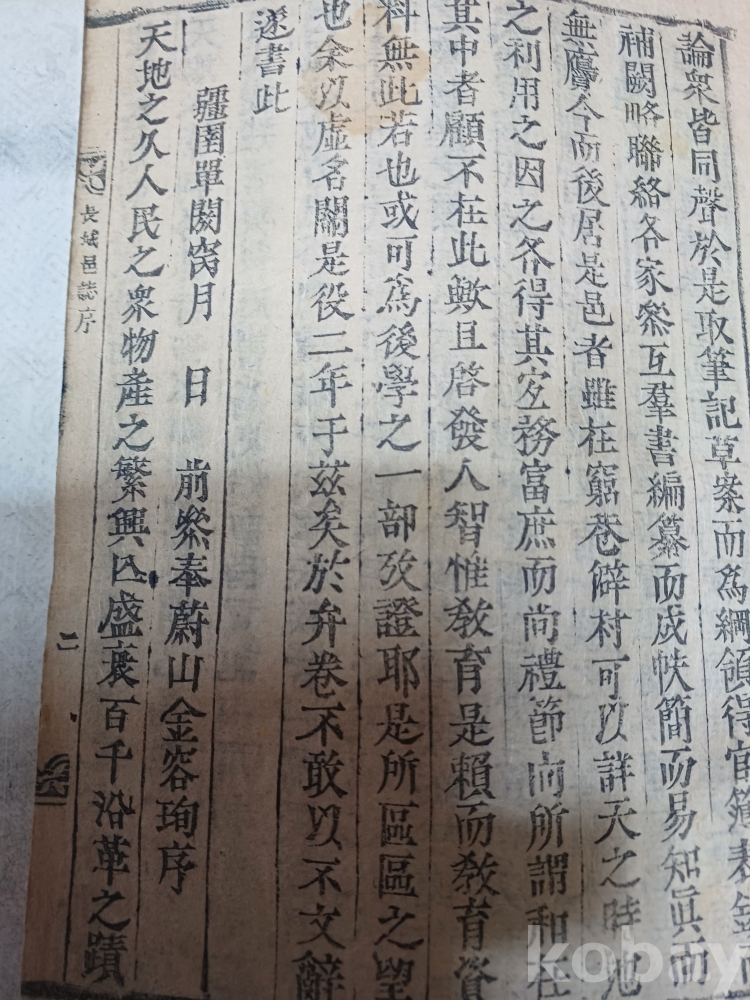 論衆皆同聲於是取筆記草案而爲綱領得官簿
補闕略聯絡各家叅互羣書編纂而成帙簡而易知眞而
無贋今而後居是邑者雖在窮巷僻村可以詳天之時地
之利用之因之各得其宜務富庶而尚禮節向所謂和在
其中者顧不在此歟且啓發人智惟敎育是賴而敎育資
料無此若也或可爲後學之一部攷證耶是所區區之望
也余以虛名關是役二年于玆矣於弁卷不敢以不文辭
遂書此
疆圉單閼窉月 日 前叅奉蔚山金容珣序
天地之久人民之衆物產之繁興亾盛衰百千沿革之蹟
長城邑誌序
二
kobay